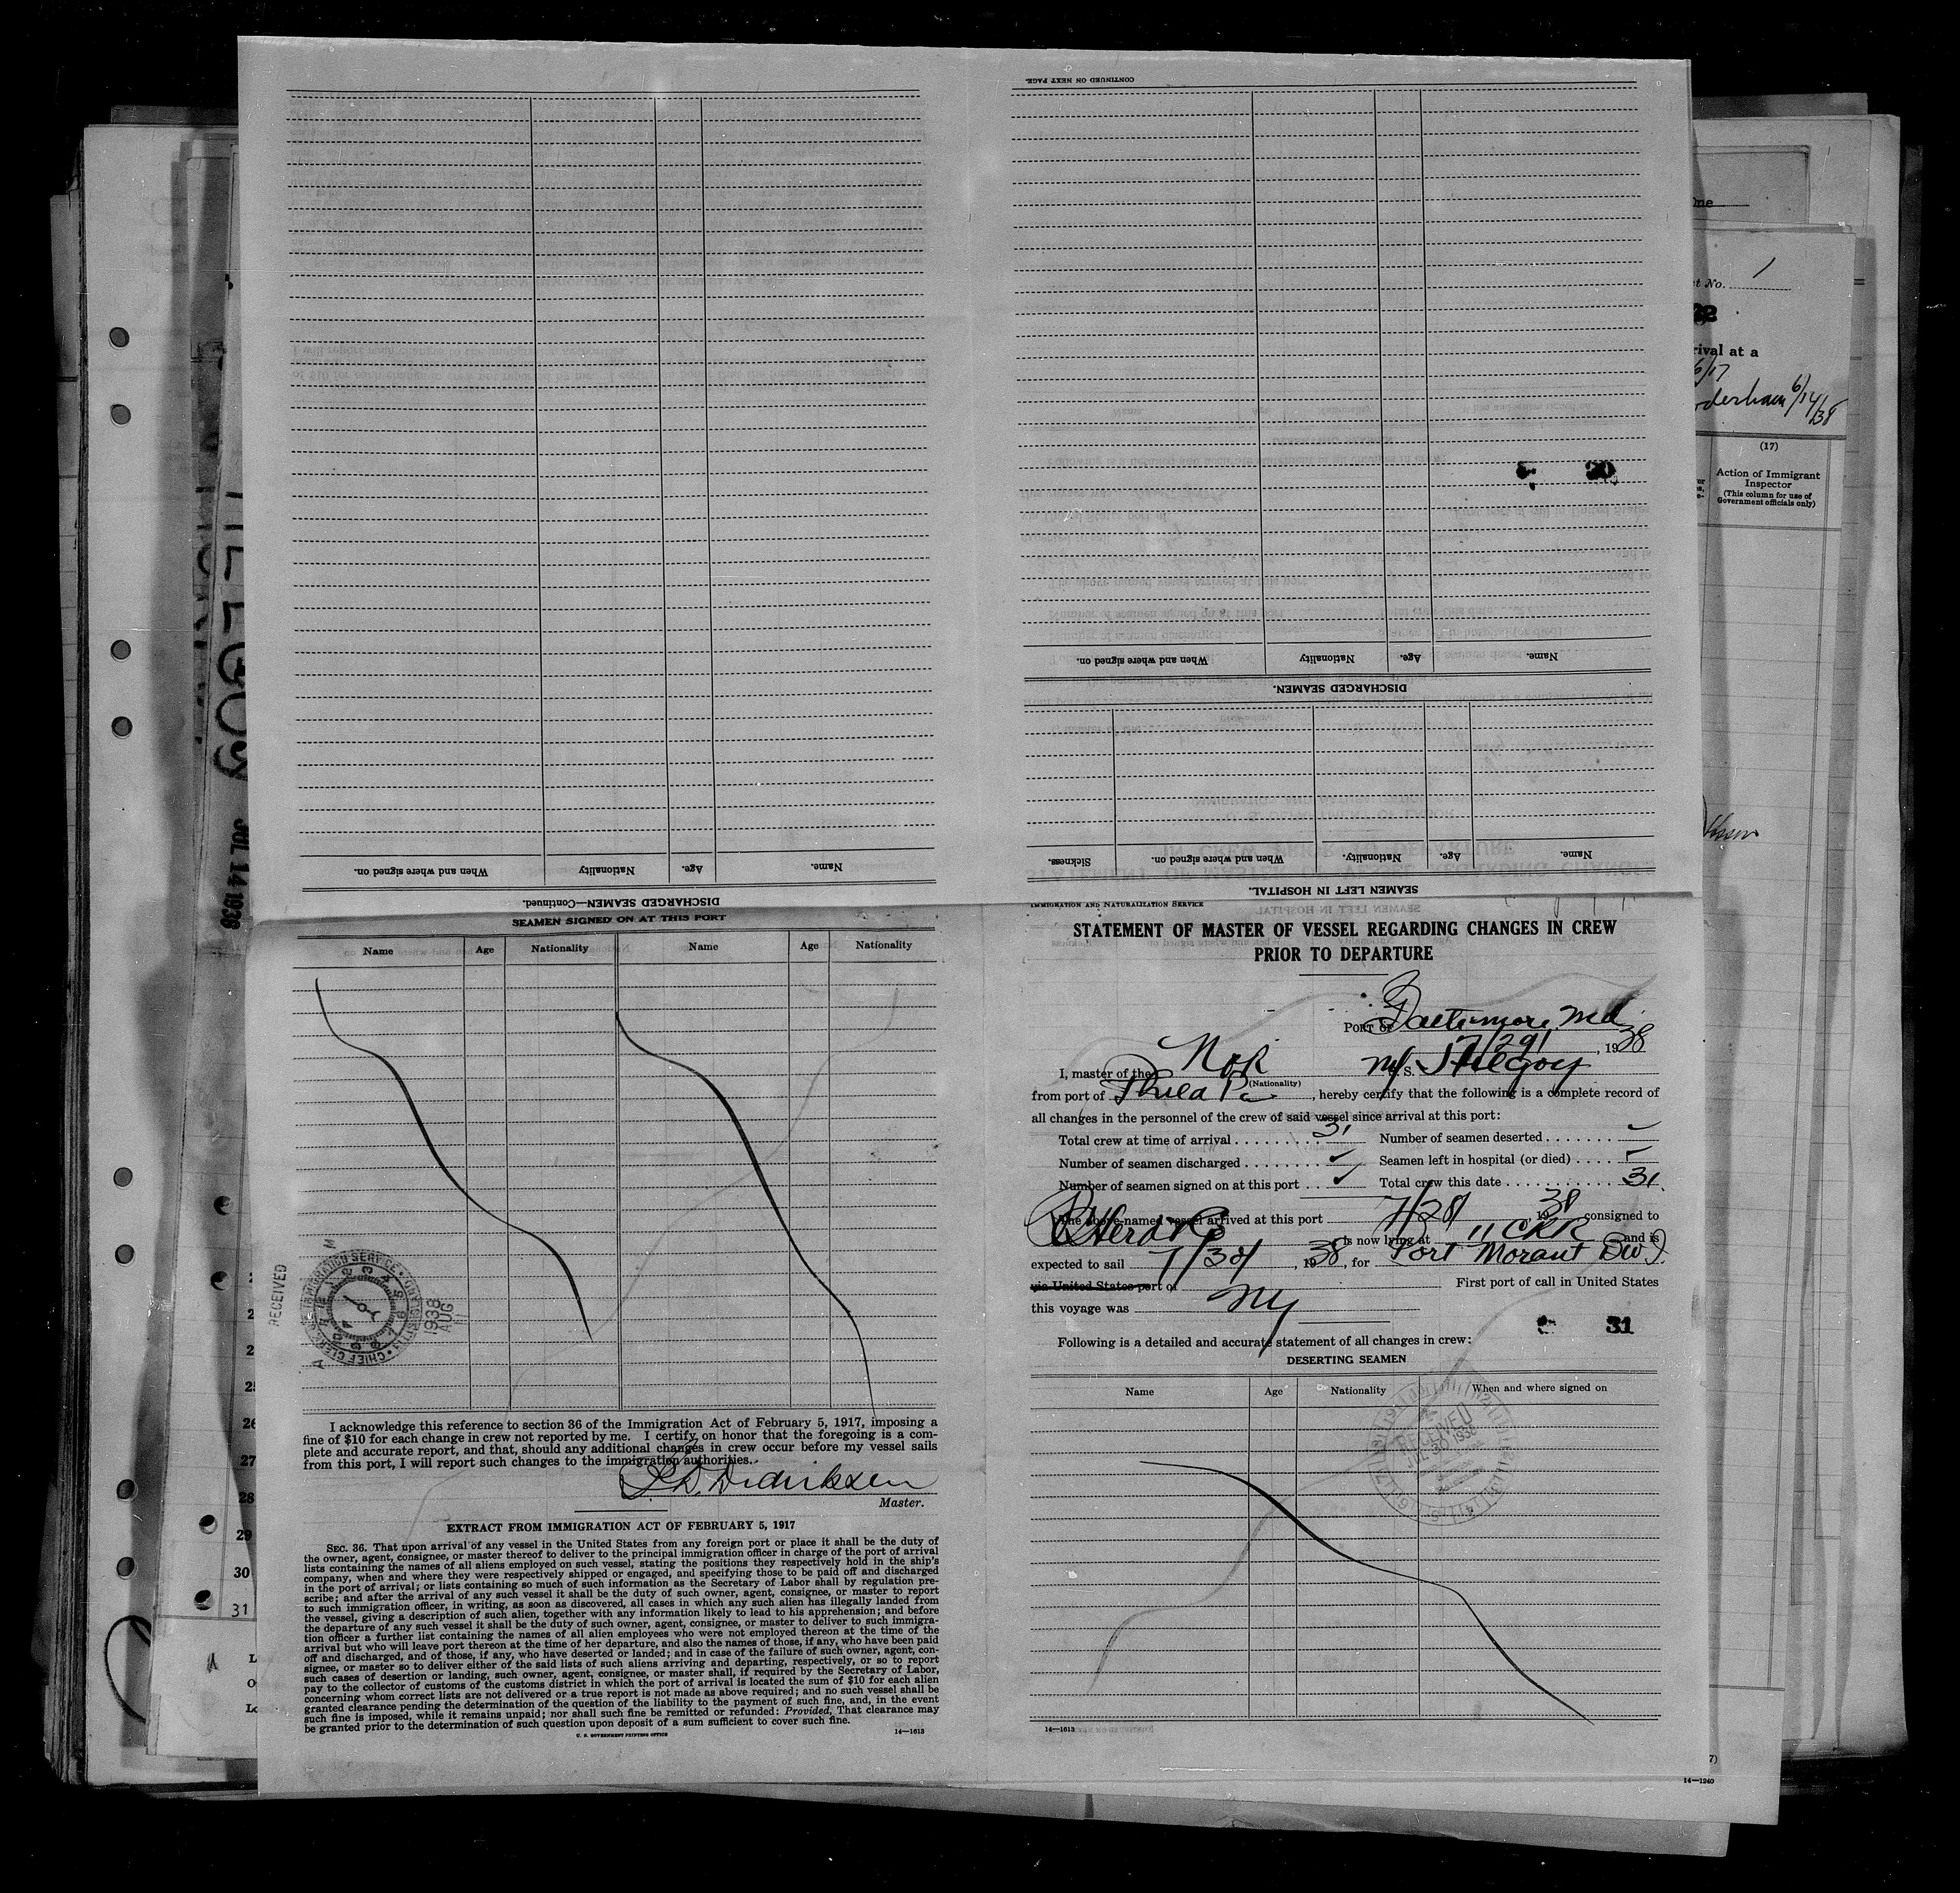 CONTINUED ON NEXT PAGE.
Name. Age. Nationality When and where signed on.
DISCHARGED SEAMEN—Continued.
Name. Age. Nationality When and where signed on.
DISCHARGED SEAMEN.
Name. Age. Nationality. When and where signed on. Sickness.
SEAMEN LEFT IN HOSPITAL.
SEAMEN SIGNED ON AT THIS PORT
Name Age Nationality Name Age Nationality
RECEIVED
IMMIGRATION SERVICE
CHIEF CLERK
1938 AUG
I acknowledge this reference to section 36 of the Immigration Act of February 5, 1917, imposing a
fine of $10 for each change in crew not reported by me. I certify on honor that the foregoing is a com-
plete and accurate report, and that, should any additional changes in crew occur before my vessel sails
from this port, I will report such changes to the immigration authorities.
Didriksen
Master.
EXTRACT FROM IMMIGRATION ACT OF FEBRUARY 5, 1917
SEC. 36. That upon arrival of any vessel in the United States from any foreign port or place it shall be the duty of
the owner, agent, consignee, or master thereof to deliver to the principal immigration officer in charge of the port of arrival
lists containing the names of all aliens employed on such vessel, stating the positions they respectively hold in the ship's
company, when and where they were respectively shipped or engaged, and specifying those to be paid off and discharged
in the port of arrival; or lists containing so much of such information as the Secretary of Labor shall by regulation pre-
scribe; and after the arrival of any such vessel it shall be the duty of such owner, agent, consignee, or master to report
to such immigration officer, in writing, as soon as discovered, all cases in which any such alien has illegally landed from
the vessel, giving a description of such alien, together with any information likely to lead to his apprehension; and before
the departure of any such vessel it shall be the duty of such owner, agent, consignee, or master to deliver to such immigra-
tion officer a further list containing the names of all alien employees who were not employed thereon at the time of the
arrival but who will leave port thereon at the time of her departure, and also the names of those, if any, who have been paid
off and discharged, and of those, if any, who have deserted or landed; and in case of the failure of such owner, agent, con-
signee, or master so to deliver either of the said lists of such aliens arriving and departing, respectively, or so to report
such cases of desertion or landing, such owner, agent, consignee, or master shall, if required by the Secretary of Labor,
pay to the collector of customs of the customs district in which the port of arrival is located the sum of $10 for each alien
concerning whom correct lists are not delivered or a true report is not made as above required; and no such vessel shall be
granted clearance pending the determination of the question of the liability to the payment of such fine, and, in the event
such fine is imposed, while it remains unpaid; nor shall such fine be remitted or refunded: Provided, That clearance may
be granted prior to the determination of such question upon deposit of a sum sufficient to cover such fine.
U. S. GOVERNMENT PRINTING OFFICE 14—1613
IMMIGRATION AND NATURALIZATION SERVICE
STATEMENT OF MASTER OF VESSEL REGARDING CHANGES IN CREW
PRIOR TO DEPARTURE
PORT OF Baltimore, Md.
7/29/, 1938
I, master of the Nor M/S. Helgoy
(Nationality)
from port of Phila Pa, hereby certify that the following is a complete record of
all changes in the personnel of the crew of said vessel since arrival at this port:
Total crew at time of arrival 31 Number of seamen deserted –
Number of seamen discharged ✓ Seamen left in hospital (or died) –
Number of seamen signed on at this port ✓ Total crew this date 31.
The above-named vessel arrived at this port 7/28/, 1938 consigned to
is now lying at and is
expected to sail 7/30/, 1938, for Port Morant BWI.
via United States port of First port of call in United States
this voyage was NY
31
Following is a detailed and accurate statement of all changes in crew:
DESERTING SEAMEN
Name Age Nationality When and where signed on
RECEIVED
JUL 30 1938
14—1613
30
JUL 14 1938
27
28
29
30
31
One
No. 1
rival at a
6/17
6/14/38
(17)
Action of Immigrant
Inspector
(This column for use of
Government officials only)
14—1240